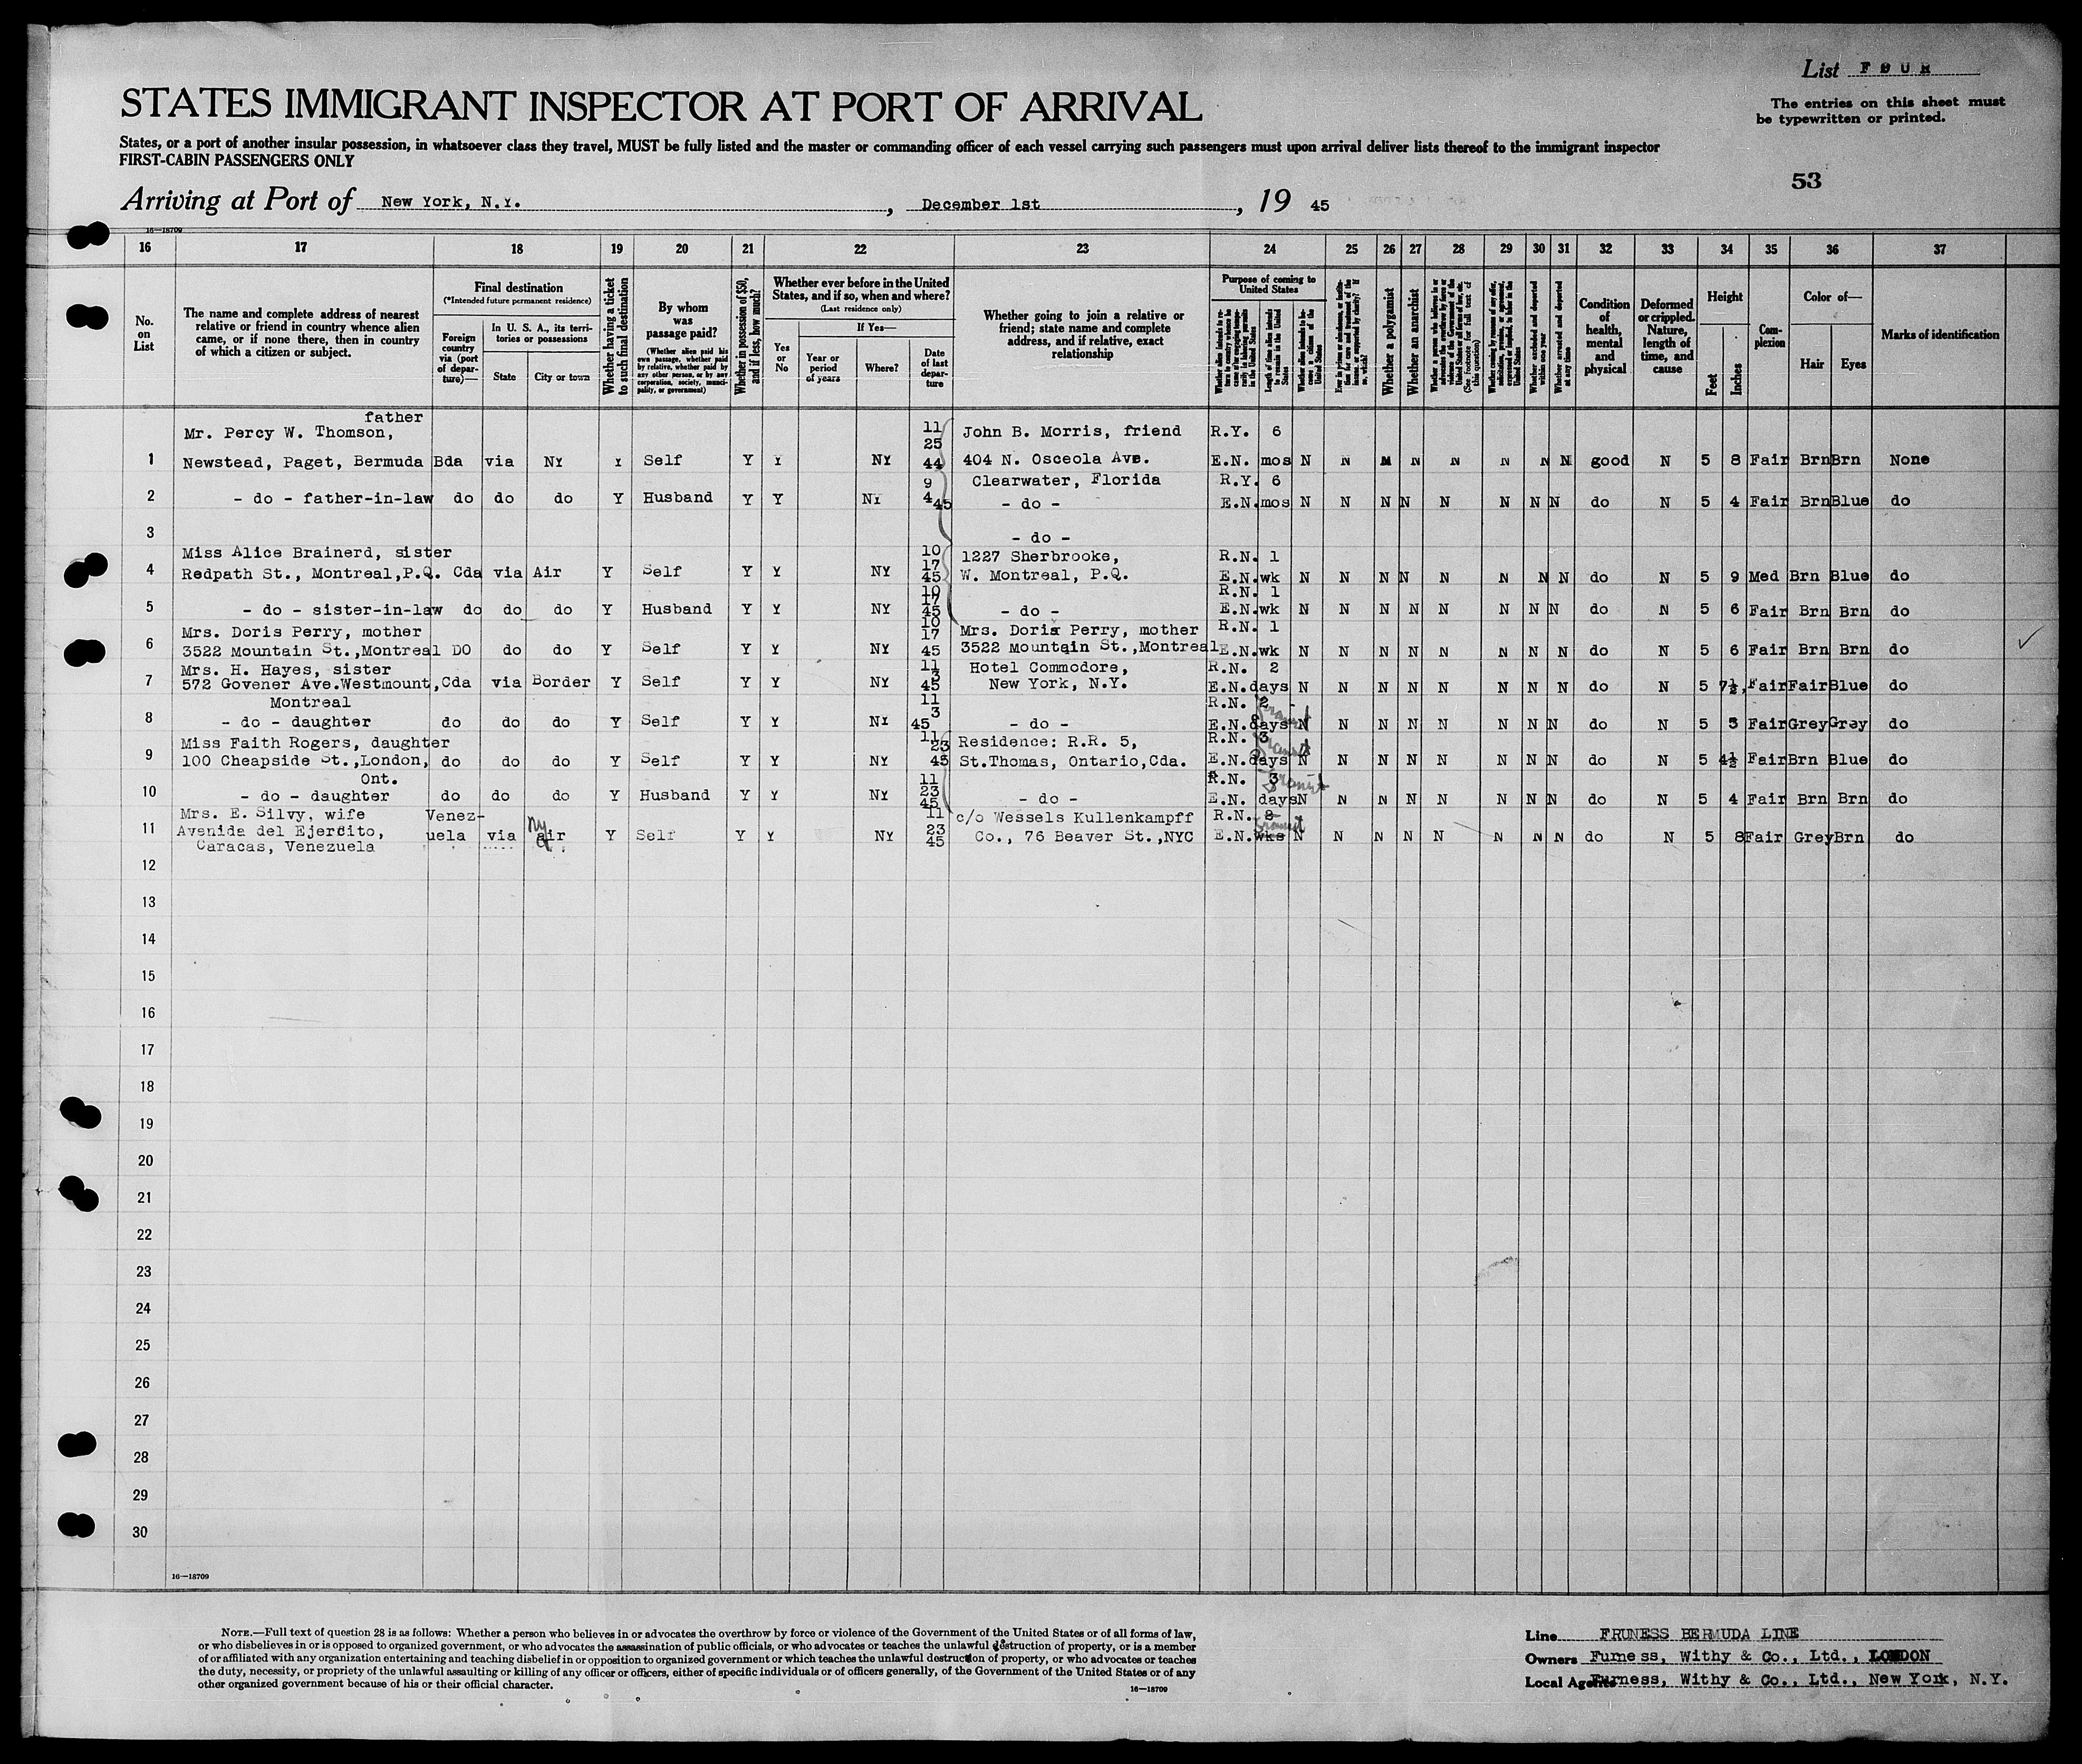 List FOUR
STATES IMMIGRANT INSPECTOR AT PORT OF ARRIVAL
The entries on this sheet must
be typewritten or printed.
States, or a port of another insular possession, in whatsoever class they travel, MUST be fully listed and the master or commanding officer of each vessel carrying such passengers must upon arrival deliver lists thereof to the immigrant inspector
FIRST-CABIN PASSENGERS ONLY
53
Arriving at Port of New York, N.Y. , December 1st , 19 45
16—18709
16 17 18 19 20 21 22 23 24 25 26 27 28 29 30 31 32 33 34 35 36 37
No. on List
The name and complete address of nearest relative or friend in country whence alien came, or if none there, then in country of which a citizen or subject.
Final destination
(*Intended future permanent residence)
Foreign country via (port of departure)—
In U. S. A., its territories or possessions
State
City or town
Whether having a ticket to such final destination
By whom was passage paid?
(Whether alien paid his own passage, whether paid by relative, whether paid by any other person, or by any corporation, society, municipality, or government)
Whether in possession of $50, and if less, how much?
Whether ever before in the United States, and if so, when and where?
(Last residence only)
Yes or No
If Yes—
Year or period of years
Where?
Date of last departure
Whether going to join a relative or friend; state name and complete address, and if relative, exact relationship
Purpose of coming to United States
Length of time alien intends to remain in the United States
Whether alien intends to become a citizen of the United States
Whether a polygamist
Whether an anarchist
(See footnote for full text of this question)
Whether excluded and deported within one year
Whether arrested and deported at any time
Condition of health, mental and physical
Deformed or crippled. Nature, length of time, and cause
Height
Feet
Inches
Complexion
Color of—
Hair
Eyes
Marks of identification
father
Mr. Percy W. Thomson, 11 25 John B. Morris, friend R.Y. 6
1 Newstead, Paget, Bermuda Bda via NY Y Self Y Y NY 44 404 N. Osceola Ave. E.N. mos N N N N N N N N good N 5 8 Fair Brn Brn None
9 Clearwater, Florida R.Y. 6
2 - do - father-in-law do do do Y Husband Y Y NY 4 45 - do - E.N. mos N N N N N N N N do N 5 4 Fair Brn Blue do
3 - do -
Miss Alice Brainerd, sister 10 17 1227 Sherbrooke, R.N. 1
4 Redpath St., Montreal,P.Q. Cda via Air Y Self Y Y NY 45 W. Montreal, P.Q. E.N. wk N N N N N N N N do N 5 9 Med Brn Blue do
10 17 R.N. 1
5 - do - sister-in-law do do do Y Husband Y Y NY 45 - do - E.N. wk N N N N N N N N do N 5 6 Fair Brn Brn do
Mrs. Doris Perry, mother 10 17 Mrs. Doris Perry, mother R.N. 1
6 3522 Mountain St.,Montreal DO do do Y Self Y Y NY 45 3522 Mountain St.,Montreal E.N. wk N N N N N N N N do N 5 6 Fair Brn Brn do
Mrs. H. Hayes, sister 11 3 Hotel Commodore, R.N. 2
7 572 Govener Ave.Westmount, Cda via Border Y Self Y Y NY 45 New York, N.Y. E.N. days N N N N N N N N do N 5 7½, Fair Fair Blue do
Montreal 11 3 R.N. 2
8 - do - daughter do do do Y Self Y Y NY 45 - do - E.N. days N N N N N N N N do N 5 5 Fair Grey Grey do
Transit
Miss Faith Rogers, daughter 11 23 Residence: R.R. 5, R.N. 3
9 100 Cheapside St.,London, do do do Y Self Y Y NY 45 St.Thomas, Ontario,Cda. E.N. days N N N N N N N N do N 5 4½ Fair Brn Blue do
Transit
Ont. 11 23 R.N. 3
10 - do - daughter do do do Y Husband Y Y NY 45 - do - E.N. days N N N N N N N N do N 5 4 Fair Brn Brn do
Transit
Mrs. E. Silvy, wife Venez- 11 c/o Wessels Kullenkampff R.N. 2
11 Avenida del Ejercito, uela via NY air Y Self Y Y NY 23 45 Co., 76 Beaver St.,NYC E.N. wks N N N N N N N N do N 5 8 Fair Grey Brn do
Transit
Caracas, Venezuela
12
13
14
15
16
17
18
19
20
21
22
23
24
25
26
27
28
29
30
16—18709
NOTE.—Full text of question 28 is as follows: Whether a person who believes in or advocates the overthrow by force or violence of the Government of the United States or of all forms of law,
or who disbelieves in or is opposed to organized government, or who advocates the assassination of public officials, or who advocates or teaches the unlawful destruction of property, or is a member
of or affiliated with any organization entertaining and teaching disbelief in or opposition to organized government or which teaches the unlawful destruction of property, or who advocates or teaches
the duty, necessity, or propriety of the unlawful assaulting or killing of any officer or officers, either of specific individuals or of officers generally, of the Government of the United States or of any
other organized government because of his or their official character.
16—18709
Line FRUNESS BERMUDA LINE
Owners Furness, Withy & Co., Ltd., LONDON
Local Agents Furness, Withy & Co., Ltd., New York, N.Y.